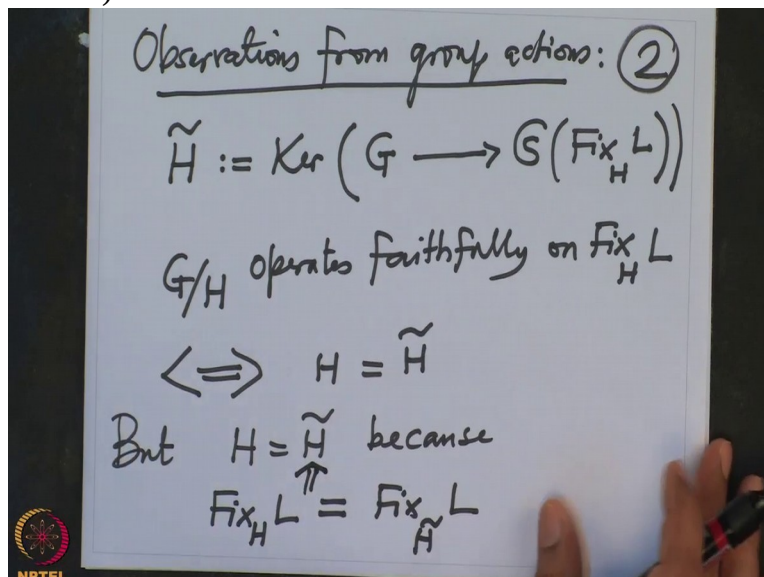 Observations from group actions: ②
H̃ := Ker (G ⟶ 𝔖(Fix_H L))
G/H operates faithfully on Fix_H L
<=> H = H̃
But H = H̃ because
⇑
Fix_H L = Fix_H̃ L
NPTEL